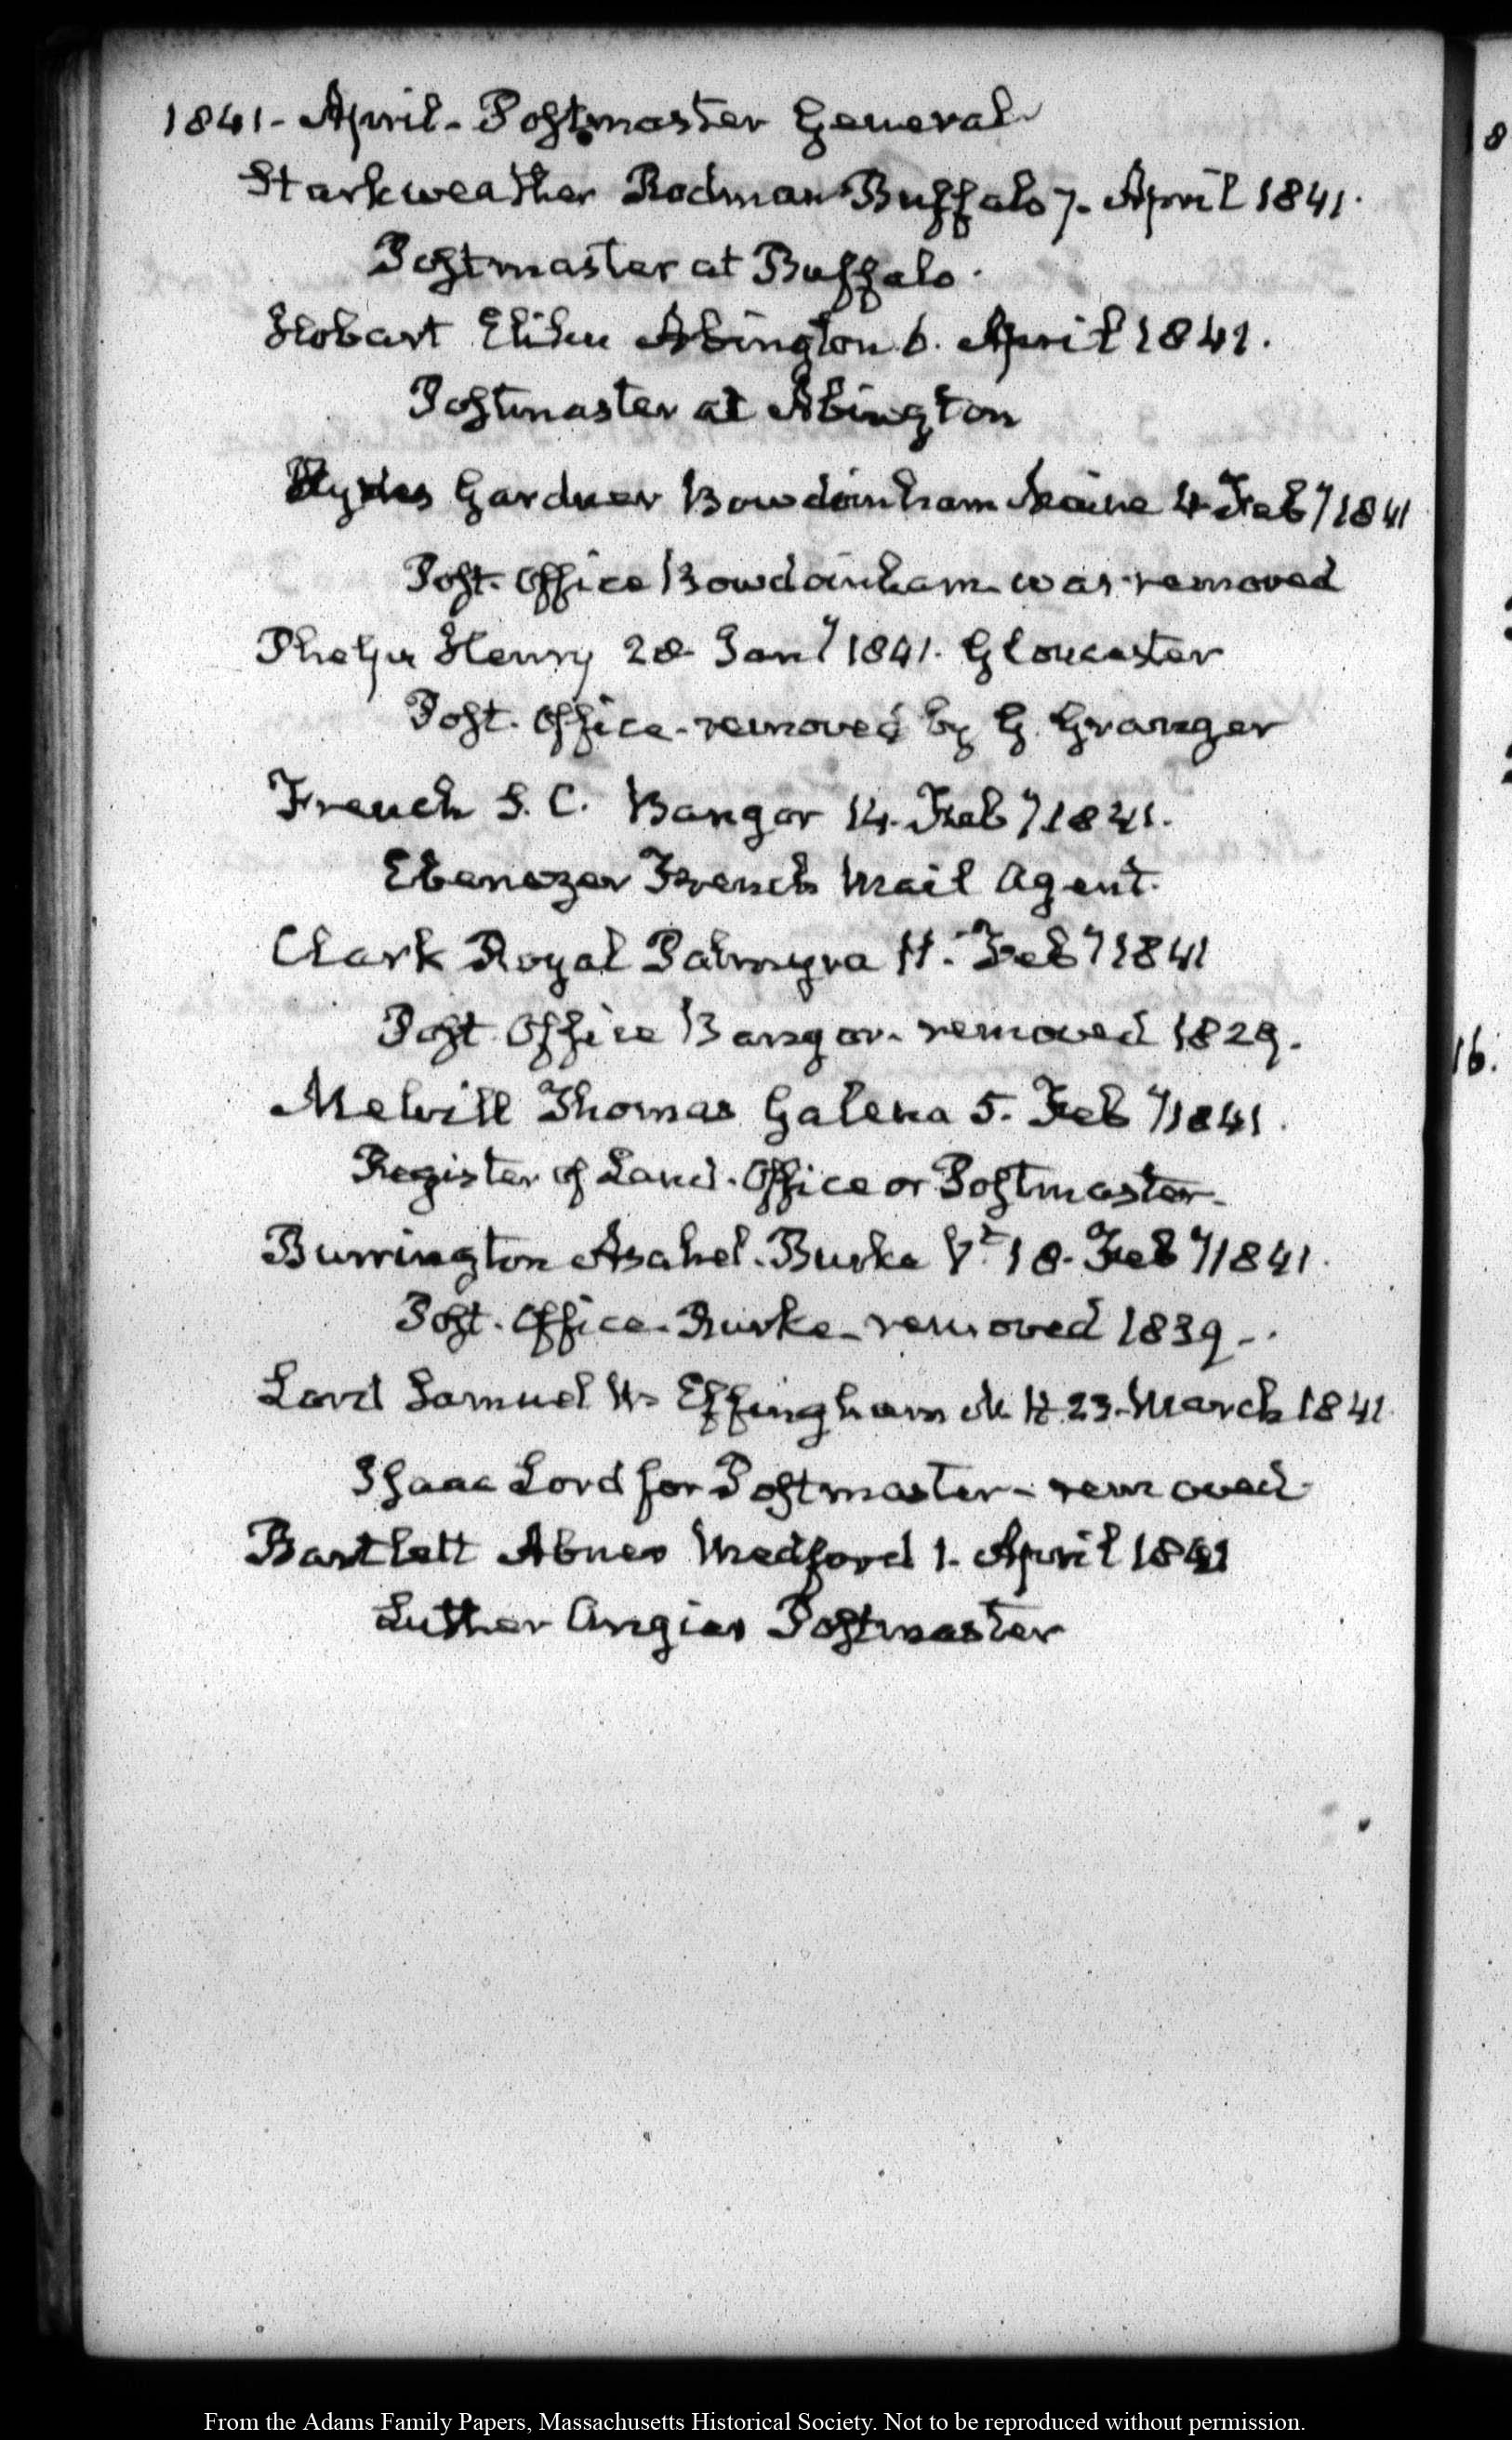 1841- April- Postmaster General
Starkweather Rodman Buffalo 7. April 1841.
Postmaster at Buffalo.
Hobart Elihu Abington 6. April 1841.
Postmaster at Abington
Gardner Bowdoinham Maine 4 Feby 1841
Post. Office Bowdoinham was removed
Phelps Henry 28 Jany 1841. Gloucester
Post. Office- removed by G. Granger
French S. C. Bangor 14. Feby 1841.
Ebenezer French Mail Agent.
Clark Royal Palmyra 11. Feby 1841
Post Office Bangor- removed 1829.
Melvill Thomas Galena 5. Feby 1841.
Register of Land. Office or Postmaster-
Burrington Asahel. Burke Vt 18. Feby 1841.
Post. Office- Burke- removed 1839-.
Lord Samuel W Effingham N H 23. March 1841
Isaac Lord for Postmaster- removed
Bartlett Abner Medford 1. April 1841
Luther Angier Postmaster
8
16.
From the Adams Family Papers, Massachusetts Historical Society. Not to be reproduced without permission.